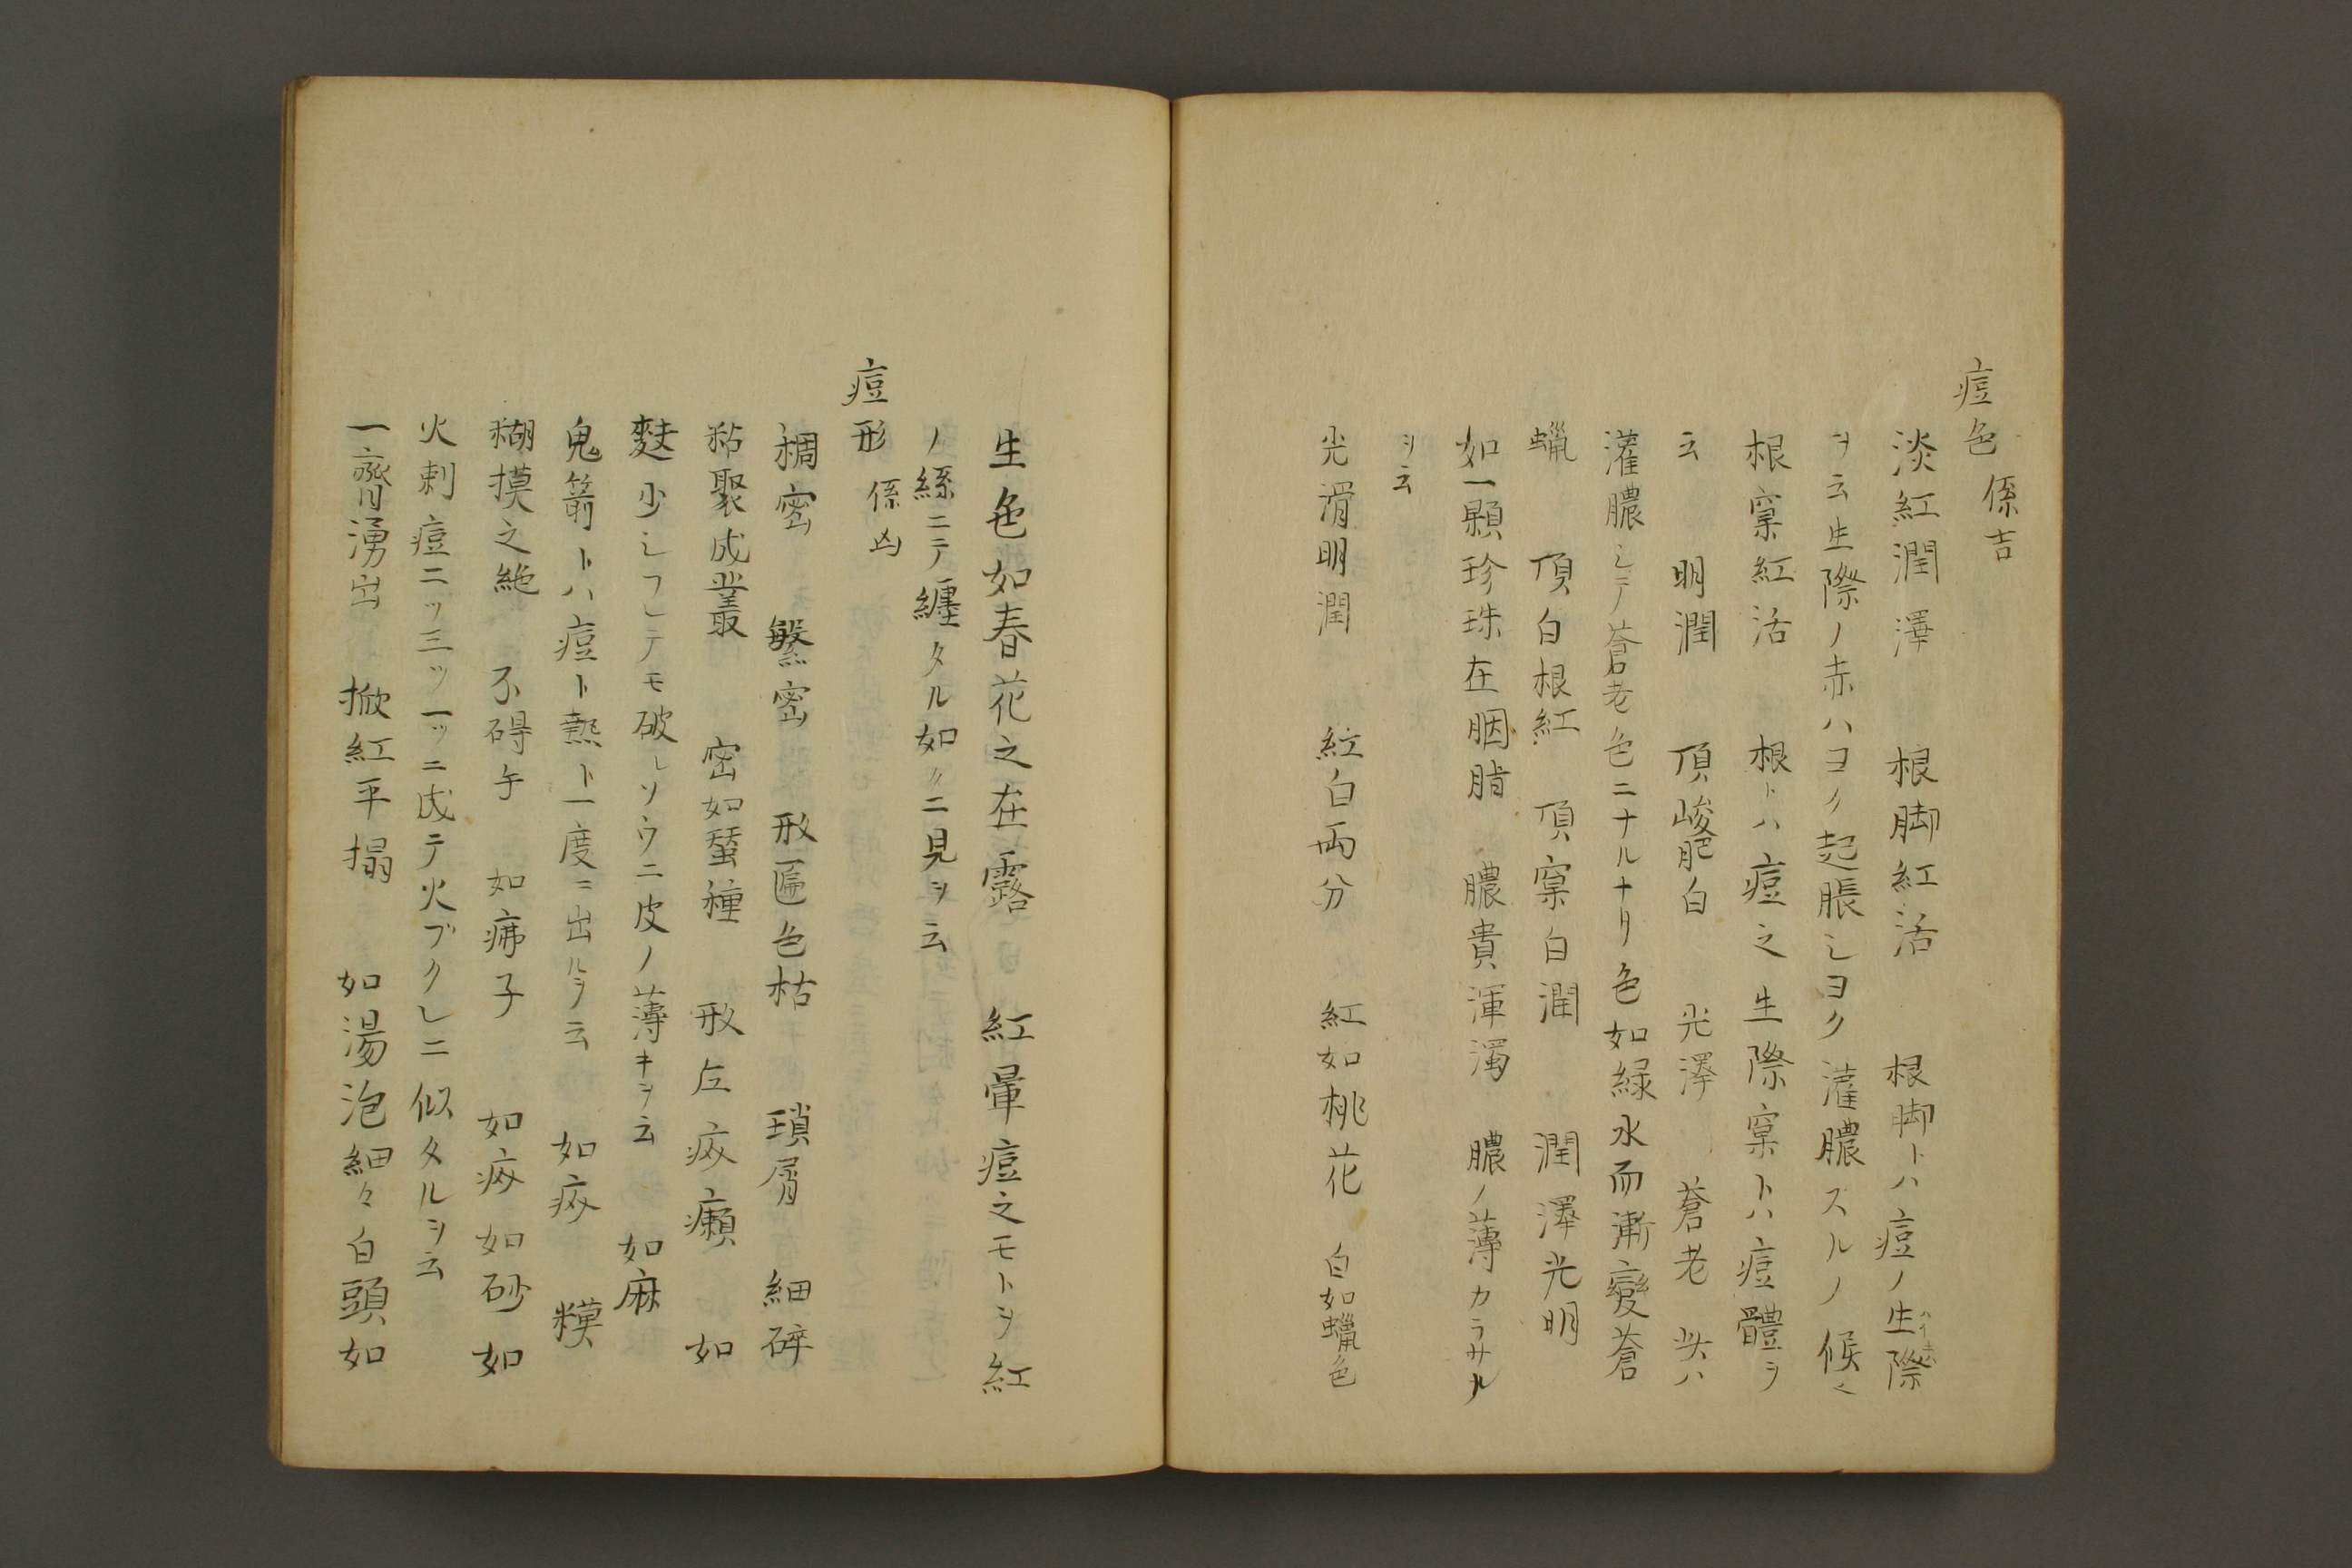 痘色 係吉
淡紅潤澤 根脚紅活 根脚トハ痘ノ生際
ヲ云生際ノ赤ハヨク起脹シヨク灌膿スルノ候
根窠紅活 根トハ痘之生際窠トハ痘體ヲ
云 明潤 頂峻肥白 光澤 蒼老
灌膿シテ蒼老色ニナルナリ色如緑水而漸變蒼
蠟 頂白根紅 頂窠白潤 潤澤光明
如一顆珍珠在胭脂 膿貴渾濁 膿ノ薄カラサル
ヲ云
光滑明潤 紅白両分 紅如桃花 白如蠟色
生色如春花之在露 紅暈痘之モトヲ紅
ノ絲ニテ纏タル如クニ見ヲ云
痘形 係凶
稠密 繁密 形匾色枯 瑣屑 細碎
粘聚成叢 密如蚕種 形 癩 如
麩少シフレテモ破レソウニ皮ノ薄キヲ云 如麻
鬼箭トハ痘ト熱ト一度ニ出ルヲ云 如 糢
糊摸之絶 不碍手 如疿子 如 如砂 如
火刺痘二ツ三ツ一ッニ成テ火ブクレニ似タルヲ云
一齊湧出 掀紅平搨 如湯泡細々白頭如